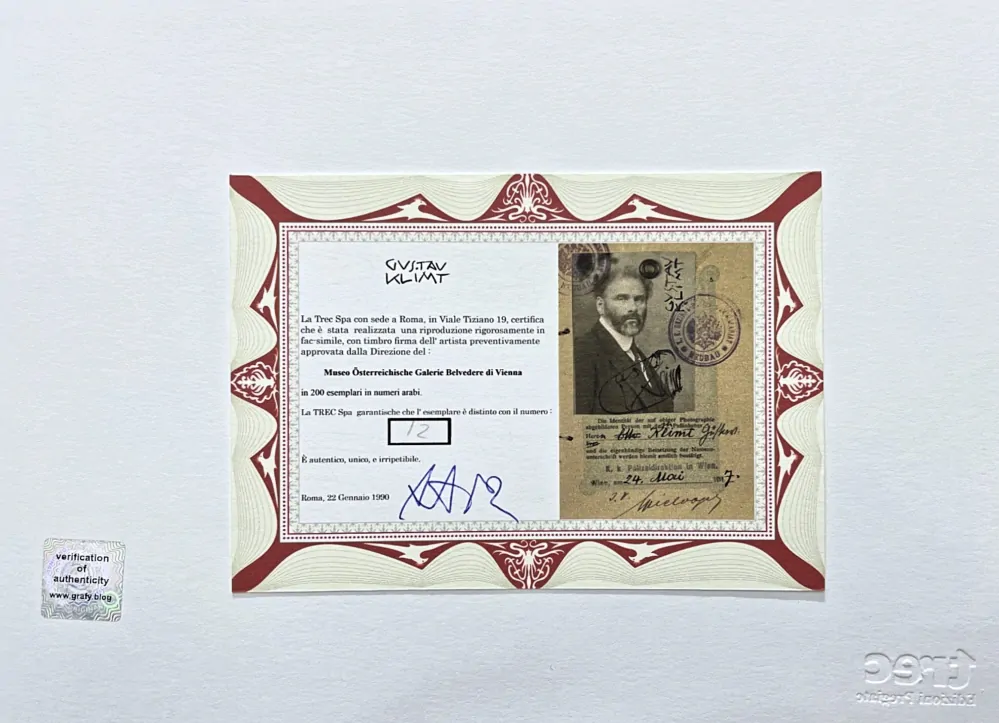 GUSTAV
KLIMT
La Trec Spa con sede a Roma, in Viale Tiziano 19, certifica
che è stata realizzata una riproduzione rigorosamente in
fac-simile, con timbro firma dell' artista preventivamente
approvata dalla Direzione del :
Museo Österreichische Galerie Belvedere di Vienna
in 200 esemplari in numeri arabi.
La TREC Spa garantische che l' esemplare è distinto con il numero :
12
È autentico, unico, e irripetibile.
Roma, 22 Gennaio 1990
KLIMT
NEUBAU
Die Identität der auf obiger Photographie
Herrn Otto Klimt Gustav
und die eigenhändige Beisetzung der Namens-
unterschrift werden hiemit amtlich bestätigt.
K. k. Polizeidirektion in Wien.
Wien, am 24. Mai 1917.
I. V.
verification
of
authenticity
www.grafy.blog
trec
Edizioni Pregiate